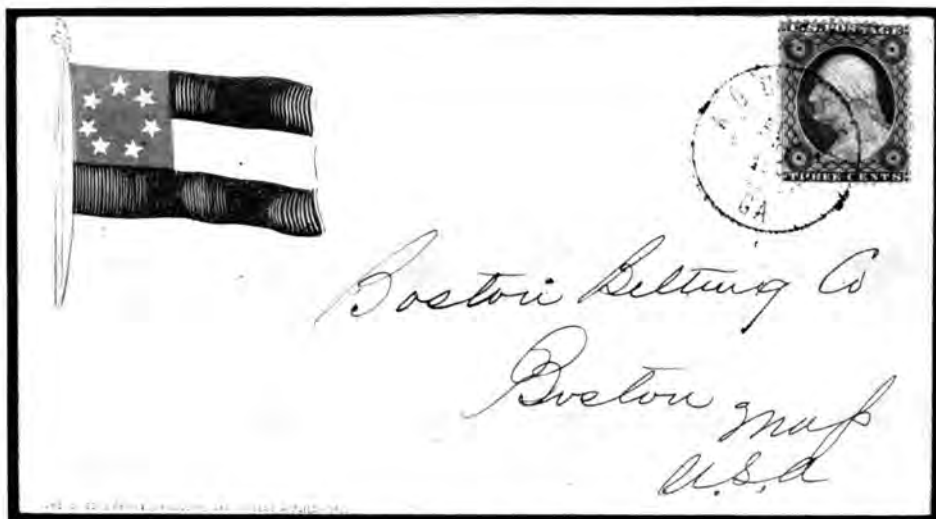 U.S. POSTAGE
THREE CENTS
GA
Boston Belting Co
Boston Mass
U.S.A